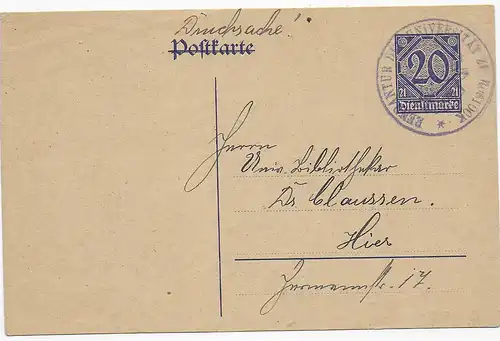 Drucksache!
Postkarte
RENTANTUR DER UNIVERSITÄT ZU ROSTOCK
20
21 21
Dienstmarke
Herrn
Univ. Bibliothekar
Dr Claussen.
Hier
Hermannstr. 17.